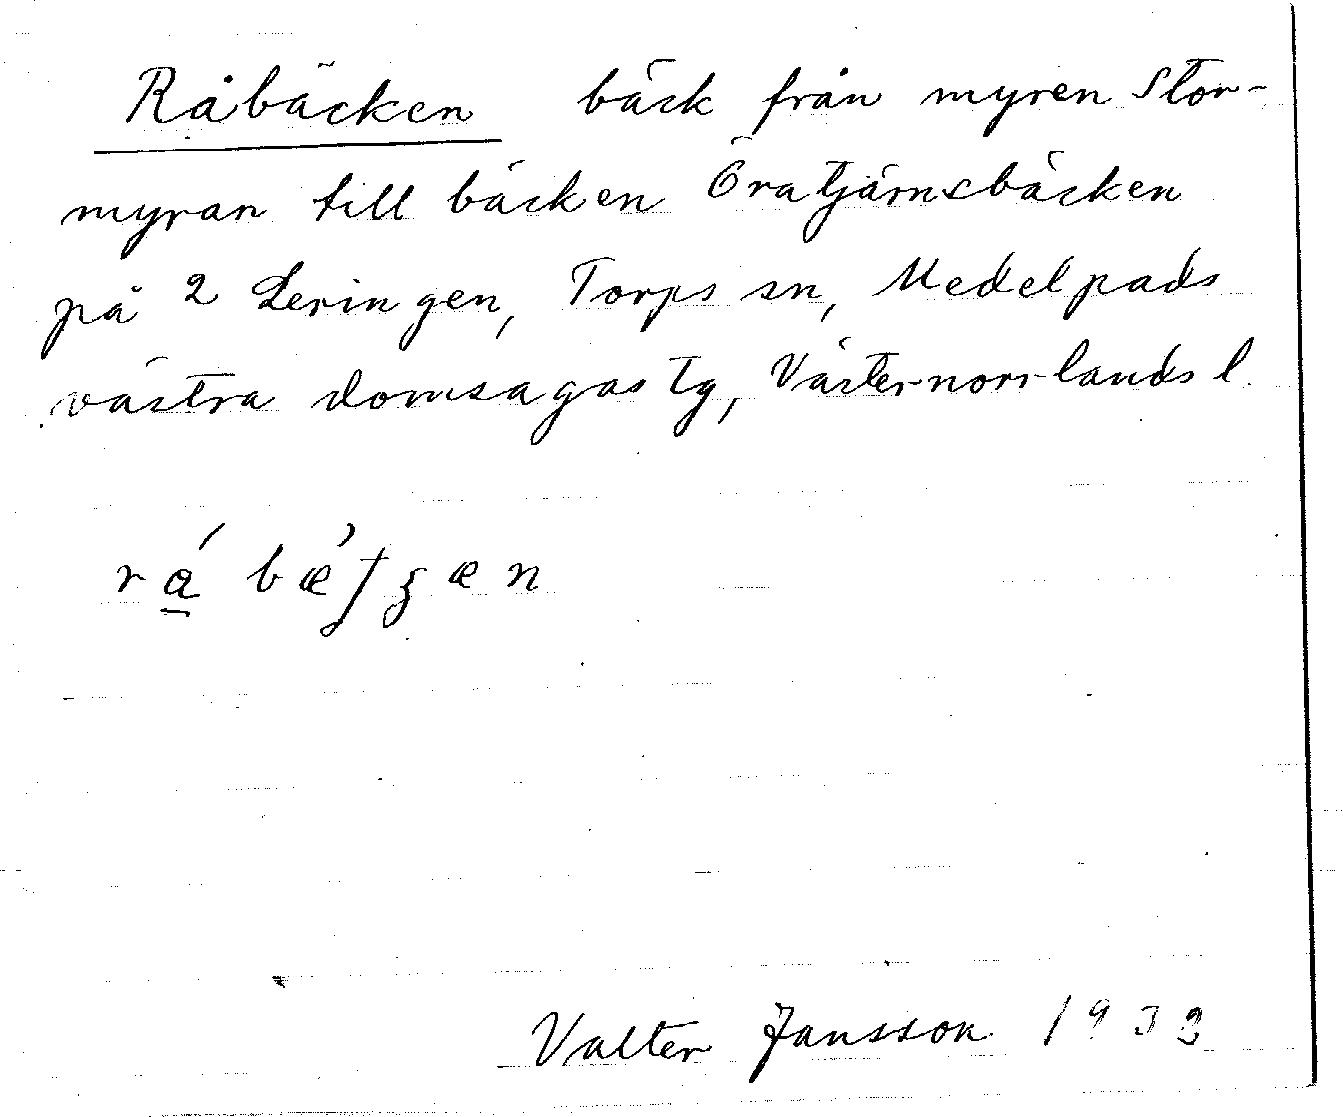 Råbäcken bäck från myren Stor-
myran till bäcken Öratjärnsbäcken
på 2 Leringen, Torps sn, Medelpads
västra domsagas tg, Västernorrlands l.
Valter Jansson 1932